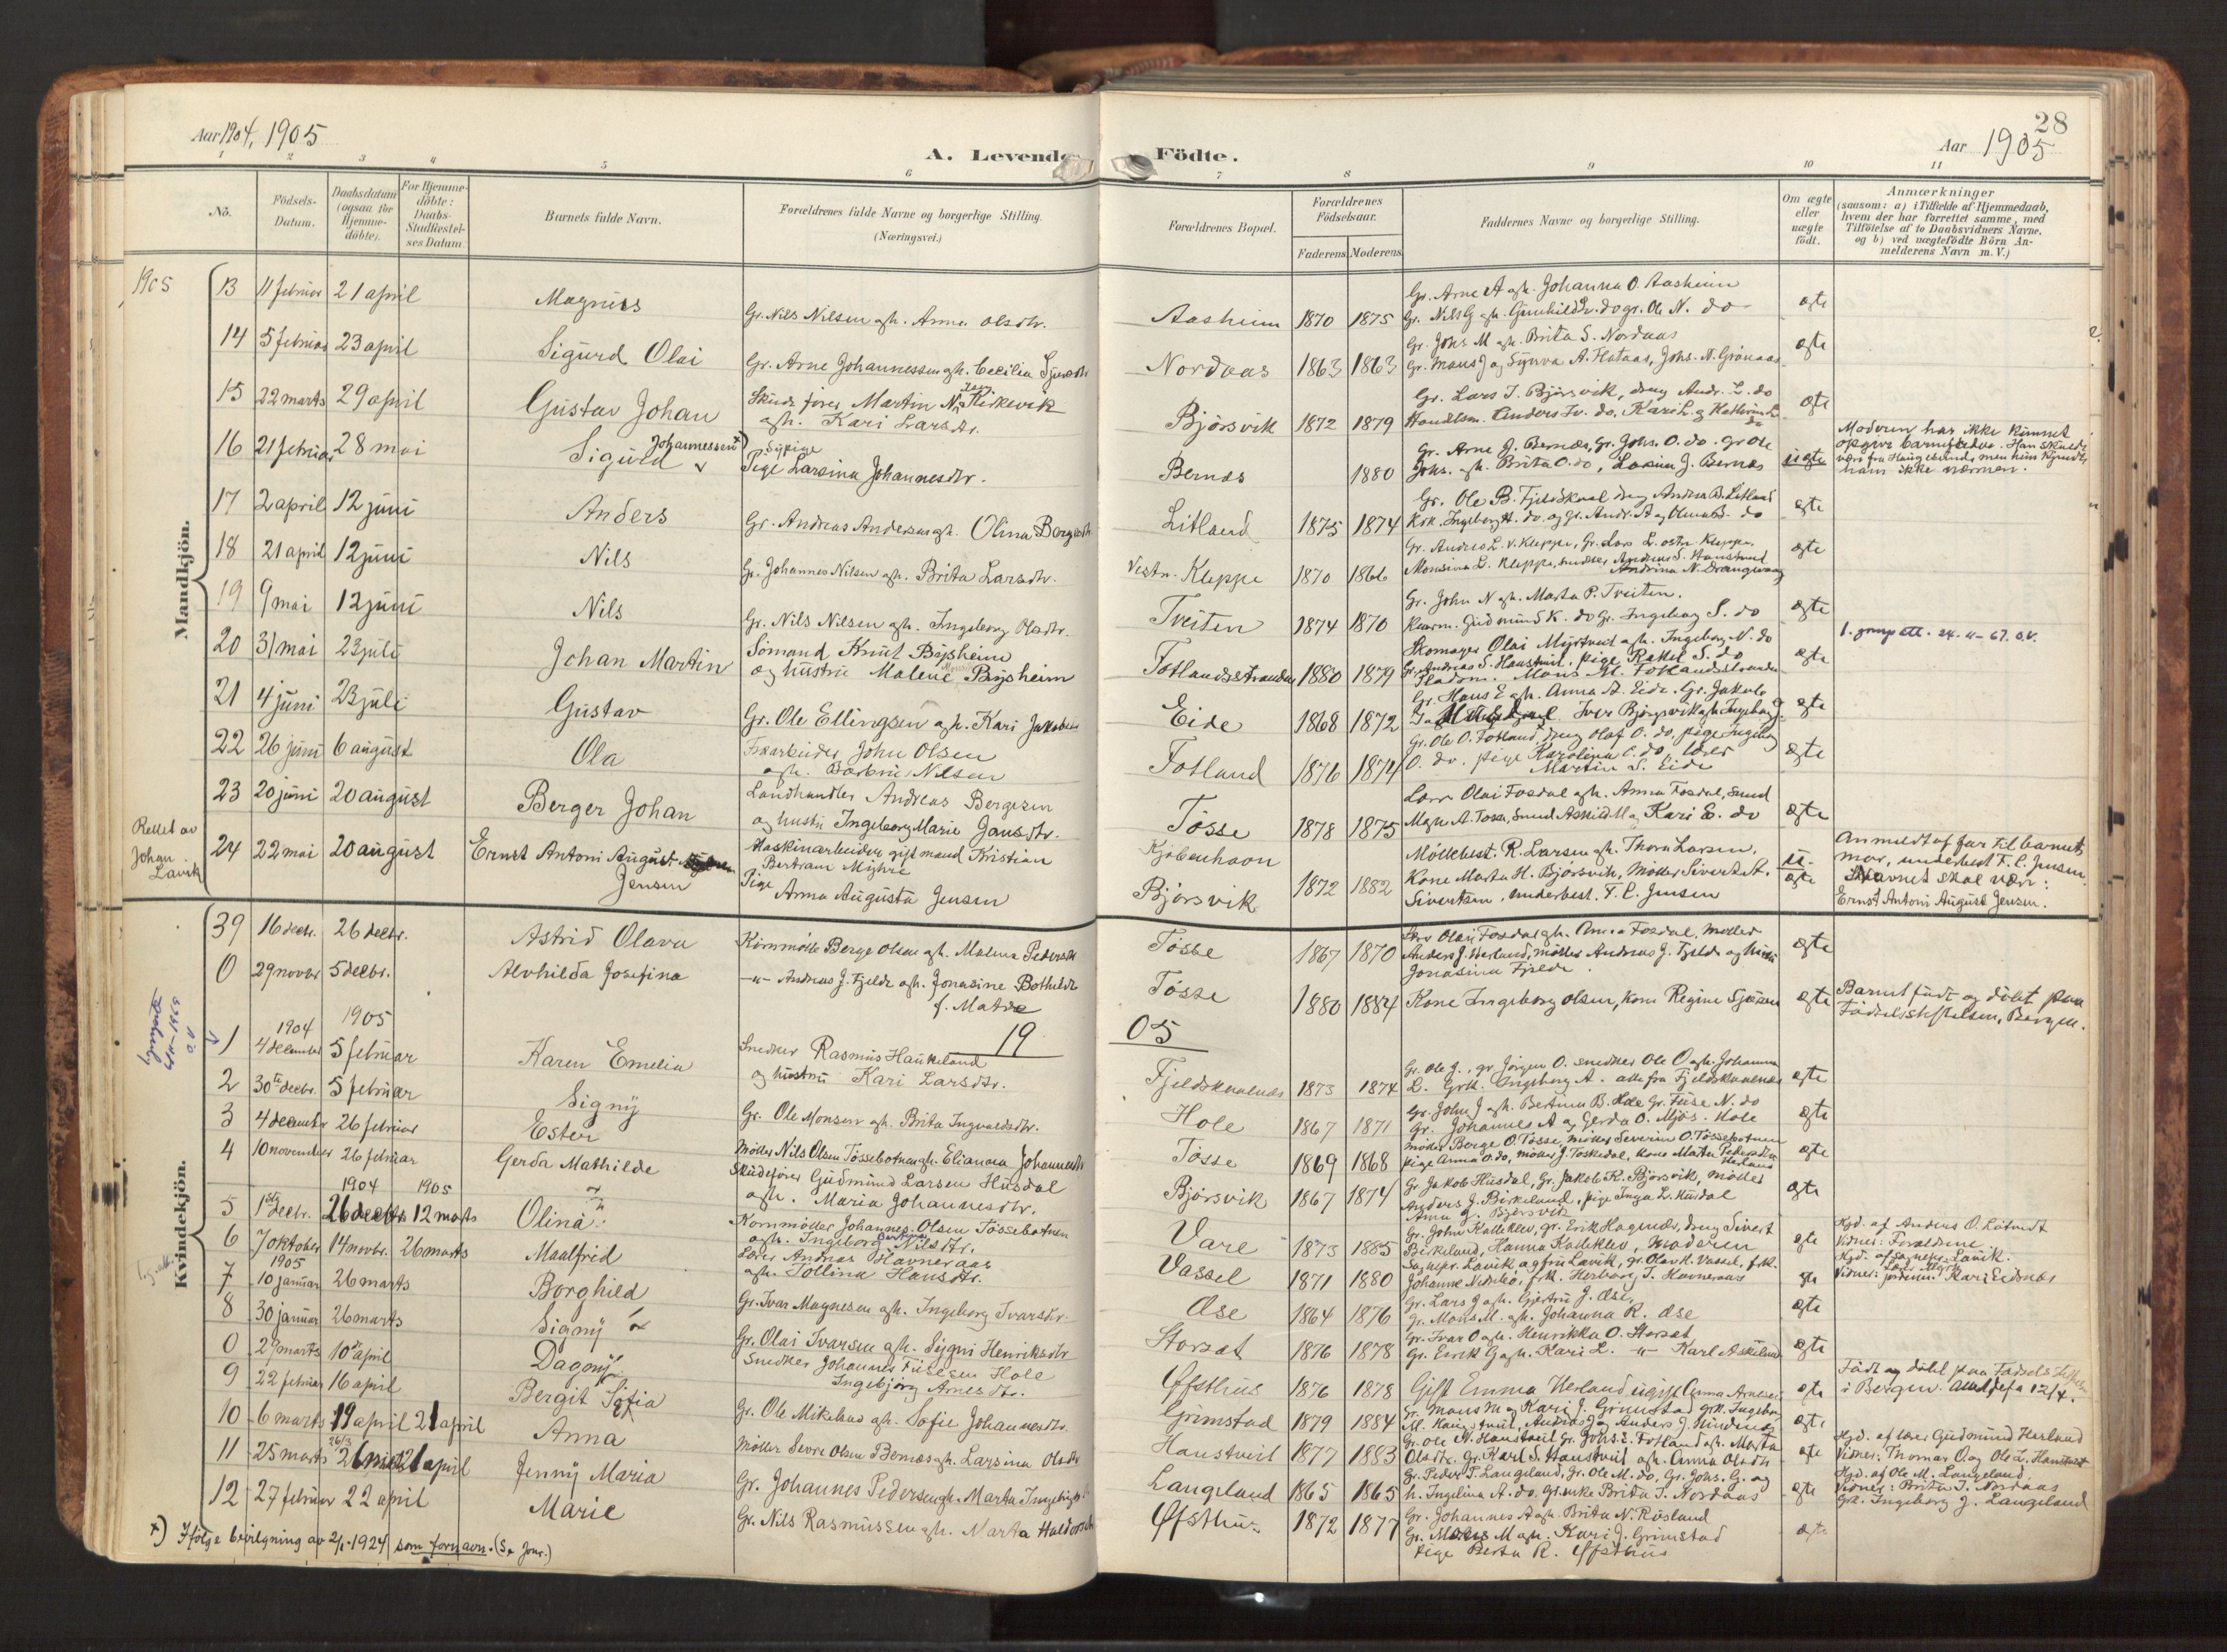 Aar 1904, 1905
A. Levende Födte.
28
Aar 1905
1 2 3 4 5 6 7 8 9 10 11
No.
Födsels-Datum.
Daabsdatum (ogsaa for Hjemme-döbte).
For Hjemme-döbte: Daabs-Stadfæstel-ses Datum.
Barnets fulde Navn.
Forældrenes fulde Navne og borgerlige Stilling. (Næringsvei.)
Forældrenes Bopæl.
Forældrenes Födselsaar.
Faderens. Moderens.
Faddernes Navne og borgerlige Stilling.
Om ægte eller uægte födt.
Anmærkninger (saasom: a) i Tilfælde af Hjemmedaab, hvem der har forrettet samme, med Tilföielse af to Daabsvidners Navne. og b) ved uægtefödte Börn An-melderens Navn m. V.)
1905
Mandkjön.
13 11 februar 21 april Magnus Gr. Nils Nilsen og h. Anna Olsdtr. Aasheim 1870 1875 Gr. Arne A og h. Johanna O. Aasheim
Gr. Nils G og h. Gunhild L. do gr. Ole N. do ægte
14 5 februar 23 april Sigurd Olai Gr. Arne Johannessen og h. Cecilia Sjursdtr Nordaas 1863 1863 Gr. Johs M og h. Brita S. Nordaas
Gr. Mons J og Synva A. Flataas, Johs. N. Grönaas ægte
15 22 marts 29 april Gustav Johan Skudefører Martin N. Birkevik
og h. Kari Larsdtr. Bjørsvik 1872 1879 Gr. Lars J. Bjørsvik, dreng Andr. L. do
Handelsm. Anders Iv. do, Kari L. og Kathrina L. do ægte
16 21 februar 28 mai Sigurd Johannessen x) Sypige
Pige Larsina Johannesdtr. Bernæs 1880 Gr. Arne J. Bernæs, Gr. Johs. O. do. Gr Ole
Johs. og h. Brita O. do, Larsina J. Bernæs uægte
Moderen har ikke kunnet
opgive barnefader. Han skulde
være fra Haugesund, men hun kjendte
ham ikke nærmere.
17 2 april 12 juni Anders Gr. Andreas Andersen og h. Olina Borgesdtr Litland 1875 1874 Gr. Ole B. Fjeldskaal dreng Andreas B. Litland
Krk. Ingeborg H. do. og Gr. Andr. A og Olina B. do ægte
18 21 april 12 juni Nils Gr. Johannes Nilsen og h. Brita Larsdtr. Vestr. Kleppe 1870 1866 Gr. Andreas L. v. Kleppe, Gr. Lars L. østr. Kleppe.
Monsina L. Kleppe, snedker Andreas S. Haustveit
Andrina N. Drangevaag ægte
19 9 mai 12 juni Nils Gr. Nils Nilsen og h. Ingeborg Olsdtr. Tveiten 1874 1870 Gr. John N og h. Marta P. Tveiten.
Gudmund K. do Gr. Ingeborg S. do ægte
20 31 mai 23 juli Johan Martin Sömand Knut Bysheim
og hustru Malene Bysheim Totlandsstranden 1880 1879 Skomager Olai Myrtveit og h. Ingeborg N. do
Gr. Andreas S. Haustveit, pige Rakel S. do
Mons M. Totlandsstranden ægte
21 4 juni 23 juli Gustav Gr. Ole Ellingsen og h. Kari Jakobsen Eide 1868 1872 Gr. Hans E og h. Anna A. Eide. Gr. Jakob
Iver Bjørsvik og h. Ingeborg ægte
22 26 juni 6 august Ola John Olsen
og h. Barbru Nilsen Totland 1876 1874 Gr. Ole O. Totland, dreng Olaf O. do, pige Ingeborg
O. do. pige Karolina E. do, lærer
Martin S. Eide ægte
23 20 juni 20 august Berger Johan Landhandler Andreas Bergesen
og hustru Ingeborg Marie Jansdtr. Tösse 1878 1875 Lærer Olai Fosdal og h. Anna Fosdal, Smed
A. Tosse, Smed Askild M og Kari E. do ægte
Rettet av
Johan Lavik
24 22 mai 20 august Ernst Antoni August
Jensen Maskinarbeider gift mand Kristian
Bertram Myhre
Pige Anna Augusta Jensen Kjøbenhavn
Bjørsvik 1872 1882 Møllebest. R. Larsen og h. Thora Larsen,
Kone Marta H. Bjørsvik, Møller Sivert A.
Sivertsen, underbest. F. C. Jensen u-ægte
Anmeldt af far til barnets
mor, underbest F. C. Jensen.
Navnet skal være:
Ernst Antoni August Jensen.
Kvindekjön.
39 16 decbr. 26 decbr. Astrid Olava Kornmölle Berge Olsen og h. Malena Pedersdtr Tösse 1867 1870 Lærer Olai Fosdal og h. Anna Fosdal, møller
Anders J. Herland, møller Andreas J. Fjelde og hustru
Jonasina Fjelde. ægte
0 29 novbr 5 decbr. Alvhilda Josefina -"- Andreas J. Fjelde og h. Jonasine Bothilde
f. Matre Tösse 1880 1884 Kone Ingeborg Olsen, kone Regine Sjösen ægte
Barnet født og døbt paa
Fødselsstiftelsen, Bergen.
1904 1905
1905
1 4 december 5 februar Karen Emelia Snedker Rasmus Haukeland
og hustru Kari Larsdtr. Fjeldskaalnæs 1873 1874 Gr. Ole J., gr. Jörgen O. snedker Ole O og h. Johanna
L. Grk. Ingeborg A. alle fra Fjeldskaalnæs ægte
2 30te decbr. 5 februar Signy Gr. Ole Monsen og h. Brita Ingvaldsdtr. Hole 1867 1871 Gr. John J og h. Bertina B. Hole Gr. Fuse N. do
Gr. Johannes A og Gerda O. Mjös. Hole ægte
3 4 december 26 februar Ester Møller Nils Olsen Tössebotnen og h. Elianna Johannesdtr Tösse 1869 1868 Møller Berge O. Tösse, møller Severin O. Tössebotnen
pige Anna O. do, møller J. Toskedal, kone Marta Pedersdtr
Herland ægte
4 10 november 26 februar Gerda Mathilde Skudefører Gudmund Larsen Husdal
og h. Maria Johannesdtr. Bjørsvik 1867 1874 Gr Jakob Husdal, Gr. Jakob K. Bjørsvik, møller
Anders J. Birkeland, pige Inga L. Husdal
Anna J. Bjørsvik ægte
1904 1905
5 1ste decbr. 26 decbr 12 marts Olina Kornmøller Johannes Olsen Tössebotnen
og h. Ingeborg Bertina Nilsdtr. Vare 1873 1885 Gr. John Kalleklev, gr. Erik Hagenæs, dreng Sivert
Birkeland, Hanna Kalleklev, moderen ægte
Hjd. af Anders O. Litveit
Vidner: Forældrene.
6 7 oktober 14 novbr. 26 marts Maalfrid Lærer Andreas Havneraas
og h. Tollina Hansdtr. Vassel 1871 1880 Sognepr. Lavik og fru Lavik, gr. Olav K. Vassel, frk.
Johanne Nedrebö, frk. Herborg T. Havneraas ægte
Hjd. af sognepr. Lavik.
Vidner: jordemor Kari Eidnæs
1905
7 10 januar 26 marts Borghild Gr. Ivar Magnesen og h. Ingeborg Ivarsdtr. Øse 1864 1876 Gr. Lars J og h. Gjertru J. Øse,
gr. Mons M. og h. Johanna R. Øse ægte
8 30 januar 26 marts Signy Gr. Olai Ivarsen og h. Sygni Henriksdtr Storsæt 1876 1878 Gr. Ivar O og h. Henrikka O. Storsæt
Gr. Eirik G og h. Kari L. -"- Karl Askeland ægte
0 29 marts 10 april Dagny Snedker Johannes Fuselsen Hole
Ingebjørg Arnesdtr. Øfsthus 1876 1878 Gift Emma Herland, ugift Anna Arnesen ægte
Født og døbt paa Fødselsstiftelsen
i Bergen. Anmeldt 12/4.
9 22 februar 16 april Bergit Sofia Gr. Ole Mikelsen og h. Sofie Johannesdtr. Grimstad 1879 1884 Gr. Mons M og Kari J. Grimstad grk. Ingebor
M. Haugstveit, Andreas J og Anders J. ægte
10 6 marts 19 april 21 april Anna Møller Sevre Olsen Bernæs og h. Larsina Olsdtr Haustveit 1877 1883 Gr. Ole N. Haustveit gr. Johs. E. Totland og h. Marta
Olsdtr. Gr. Karl S. Haustveit og h. Anna Olsdtr ægte
Hjd. af lærer Gudmund Herland
Vidner: Thomas O og Ole L. Haustveit
11 25 marts 26/3 21 april Jenny Maria Gr. Johannes Pedersen og h. Marta Ingebrigts Langeland 1865 1865 Gr. Peder T. Langeland, Gr. Ole M. do, Gr. Johs. G. og
h. Ingelina A. do. Gr. enke Brita I. Nordaas ægte
Hjd. af Ole M. Langeland,
Vidner: Brita I. Nordaas
Grk. Ingeborg J. Langeland
12 27 februar 22 april Marie Gr. Nils Rasmussen og h. Marta Haldorsdtr Øfsthus 1872 1877 Gr. Johannes A og h. Brita N. Røsland
Gr. Mons M og h. Kari J. Grimstad
Pige Berta R. Øfsthus ægte
x) Ifølge bevilgning av 2/1-1924 som fornavn. (Se Jour.)